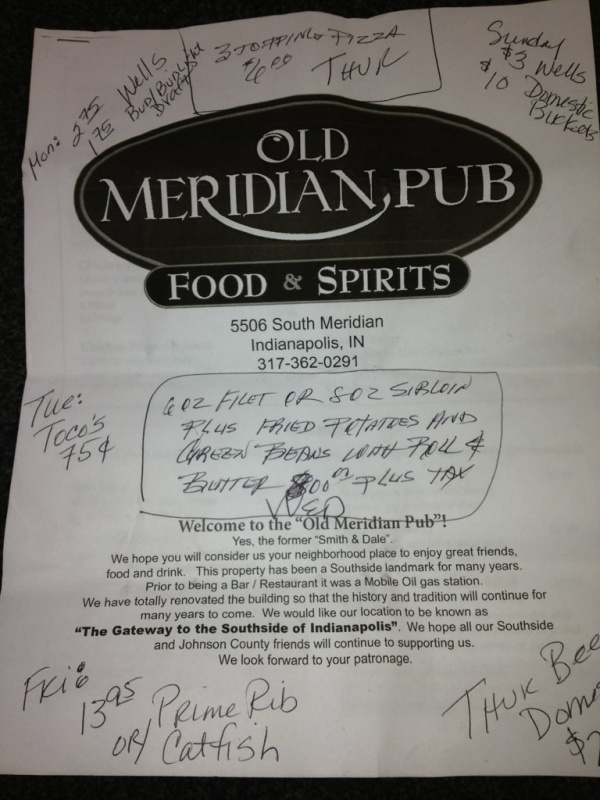 3 TOPPING PIZZA
$6.00 THUR
Mon: 2.75 Wells
1.75 Bud/Bud Light
Drafts
Sunday
$3 Wells
$10 Domestic
Buckets
OLD
MERIDIAN PUB
FOOD & SPIRITS
5506 South Meridian
Indianapolis, IN
317-362-0291
Tue:
Toco's
75¢
6 OZ FILET OR 8 OZ SIRLOIN
PLUS FRIED POTATOES AND
GREEN BEANS WITH ROLL &
BUTTER PLUS TAX
WED
Welcome to the "Old Meridian Pub"!
Yes, the former "Smith & Dale".
We hope you will consider us your neighborhood place to enjoy great friends,
food and drink. This property has been a Southside landmark for many years.
Prior to being a Bar / Restaurant it was a Mobile Oil gas station.
We have totally renovated the building so that the history and tradition will continue for
many years to come. We would like our location to be known as
"The Gateway to the Southside of Indianapolis". We hope all our Southside
and Johnson County friends will continue to supporting us.
We look forward to your patronage.
Fri:
13.95 Prime Rib
OR/ Catfish
THUR Bee
Dome
$